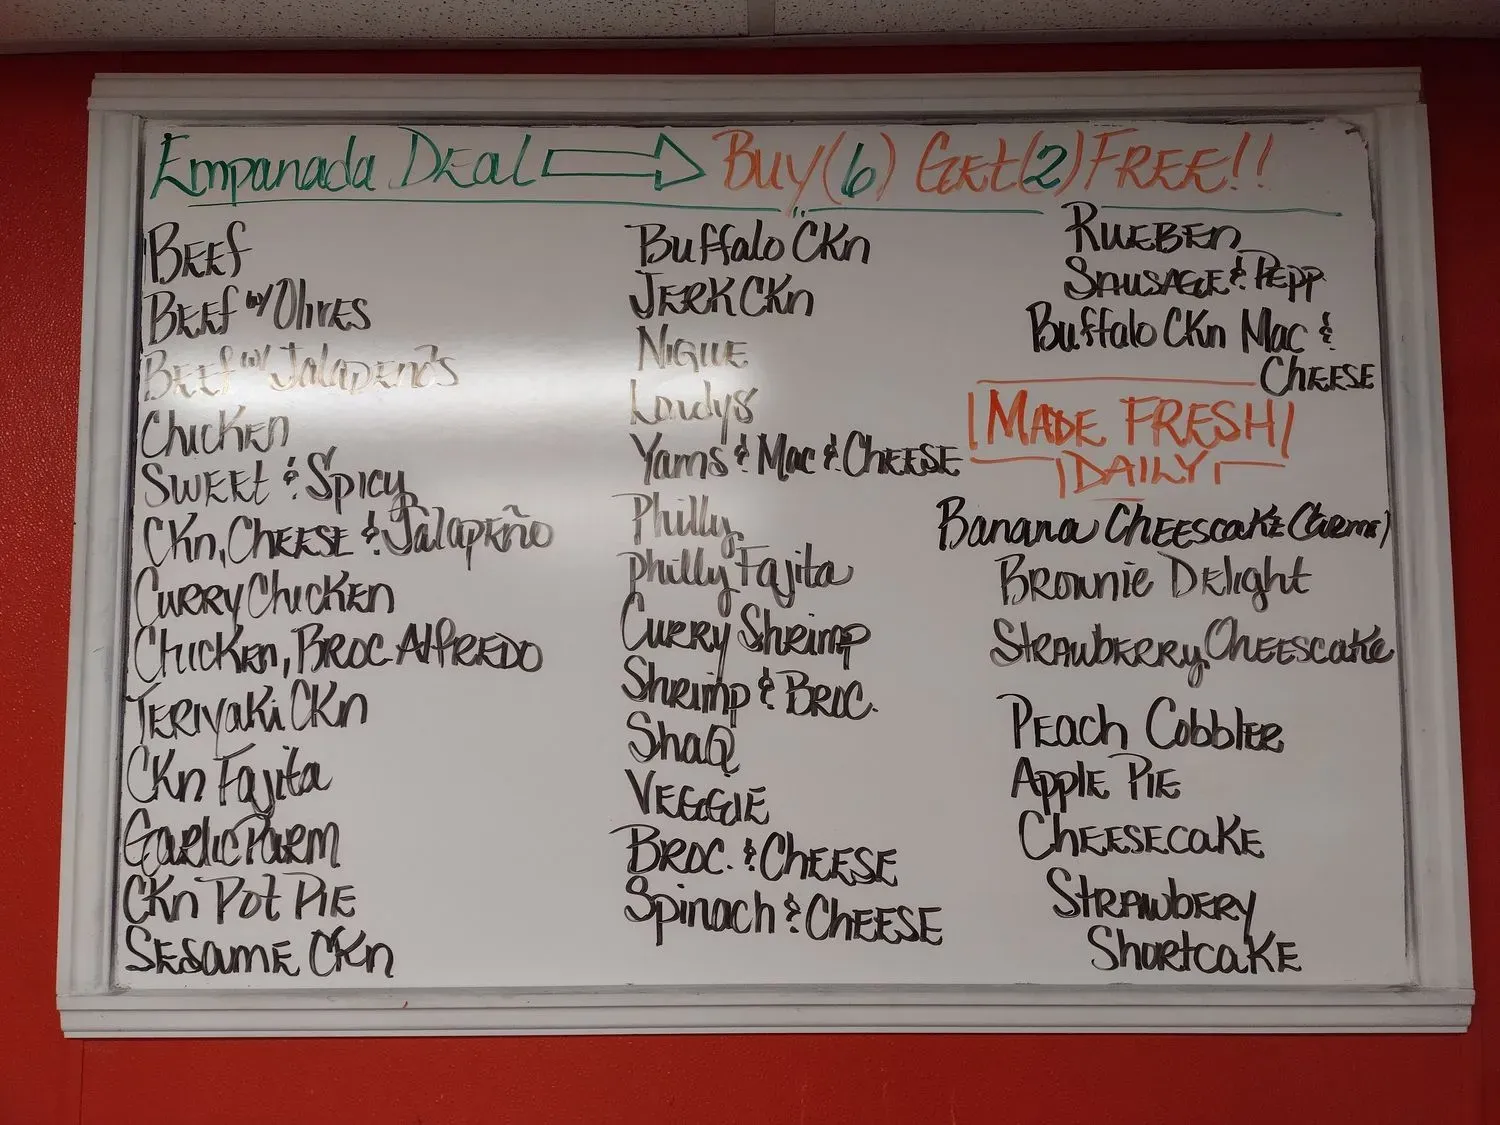 Empanada Deal Buy (6) Get (2) FREE!!
Beef
Beef w/ Olives
Beef w/ Jalapeños
Chicken
Sweet & Spicy
Ckn, Cheese & Jalapeño
Curry Chicken
Chicken, Broc. Alfredo
Teriyaki Ckn
Ckn Fajita
Garlic Parm
Ckn Pot Pie
Sesame Ckn
Buffalo Ckn
Jerk Ckn
Yams & Mac & Cheese
Philly
Philly Fajita
Curry Shrimp
Shrimp & Broc.
ShaQ
Veggie
Broc. & Cheese
Spinach & Cheese
Rueben
Sausage & Pepp
Buffalo Ckn Mac &
Cheese
Made Fresh
Daily
Banana Cheescake
Brownie Delight
Strawberry Cheescake
Peach Cobbler
Apple Pie
Cheesecake
Strawbery
Shortcake